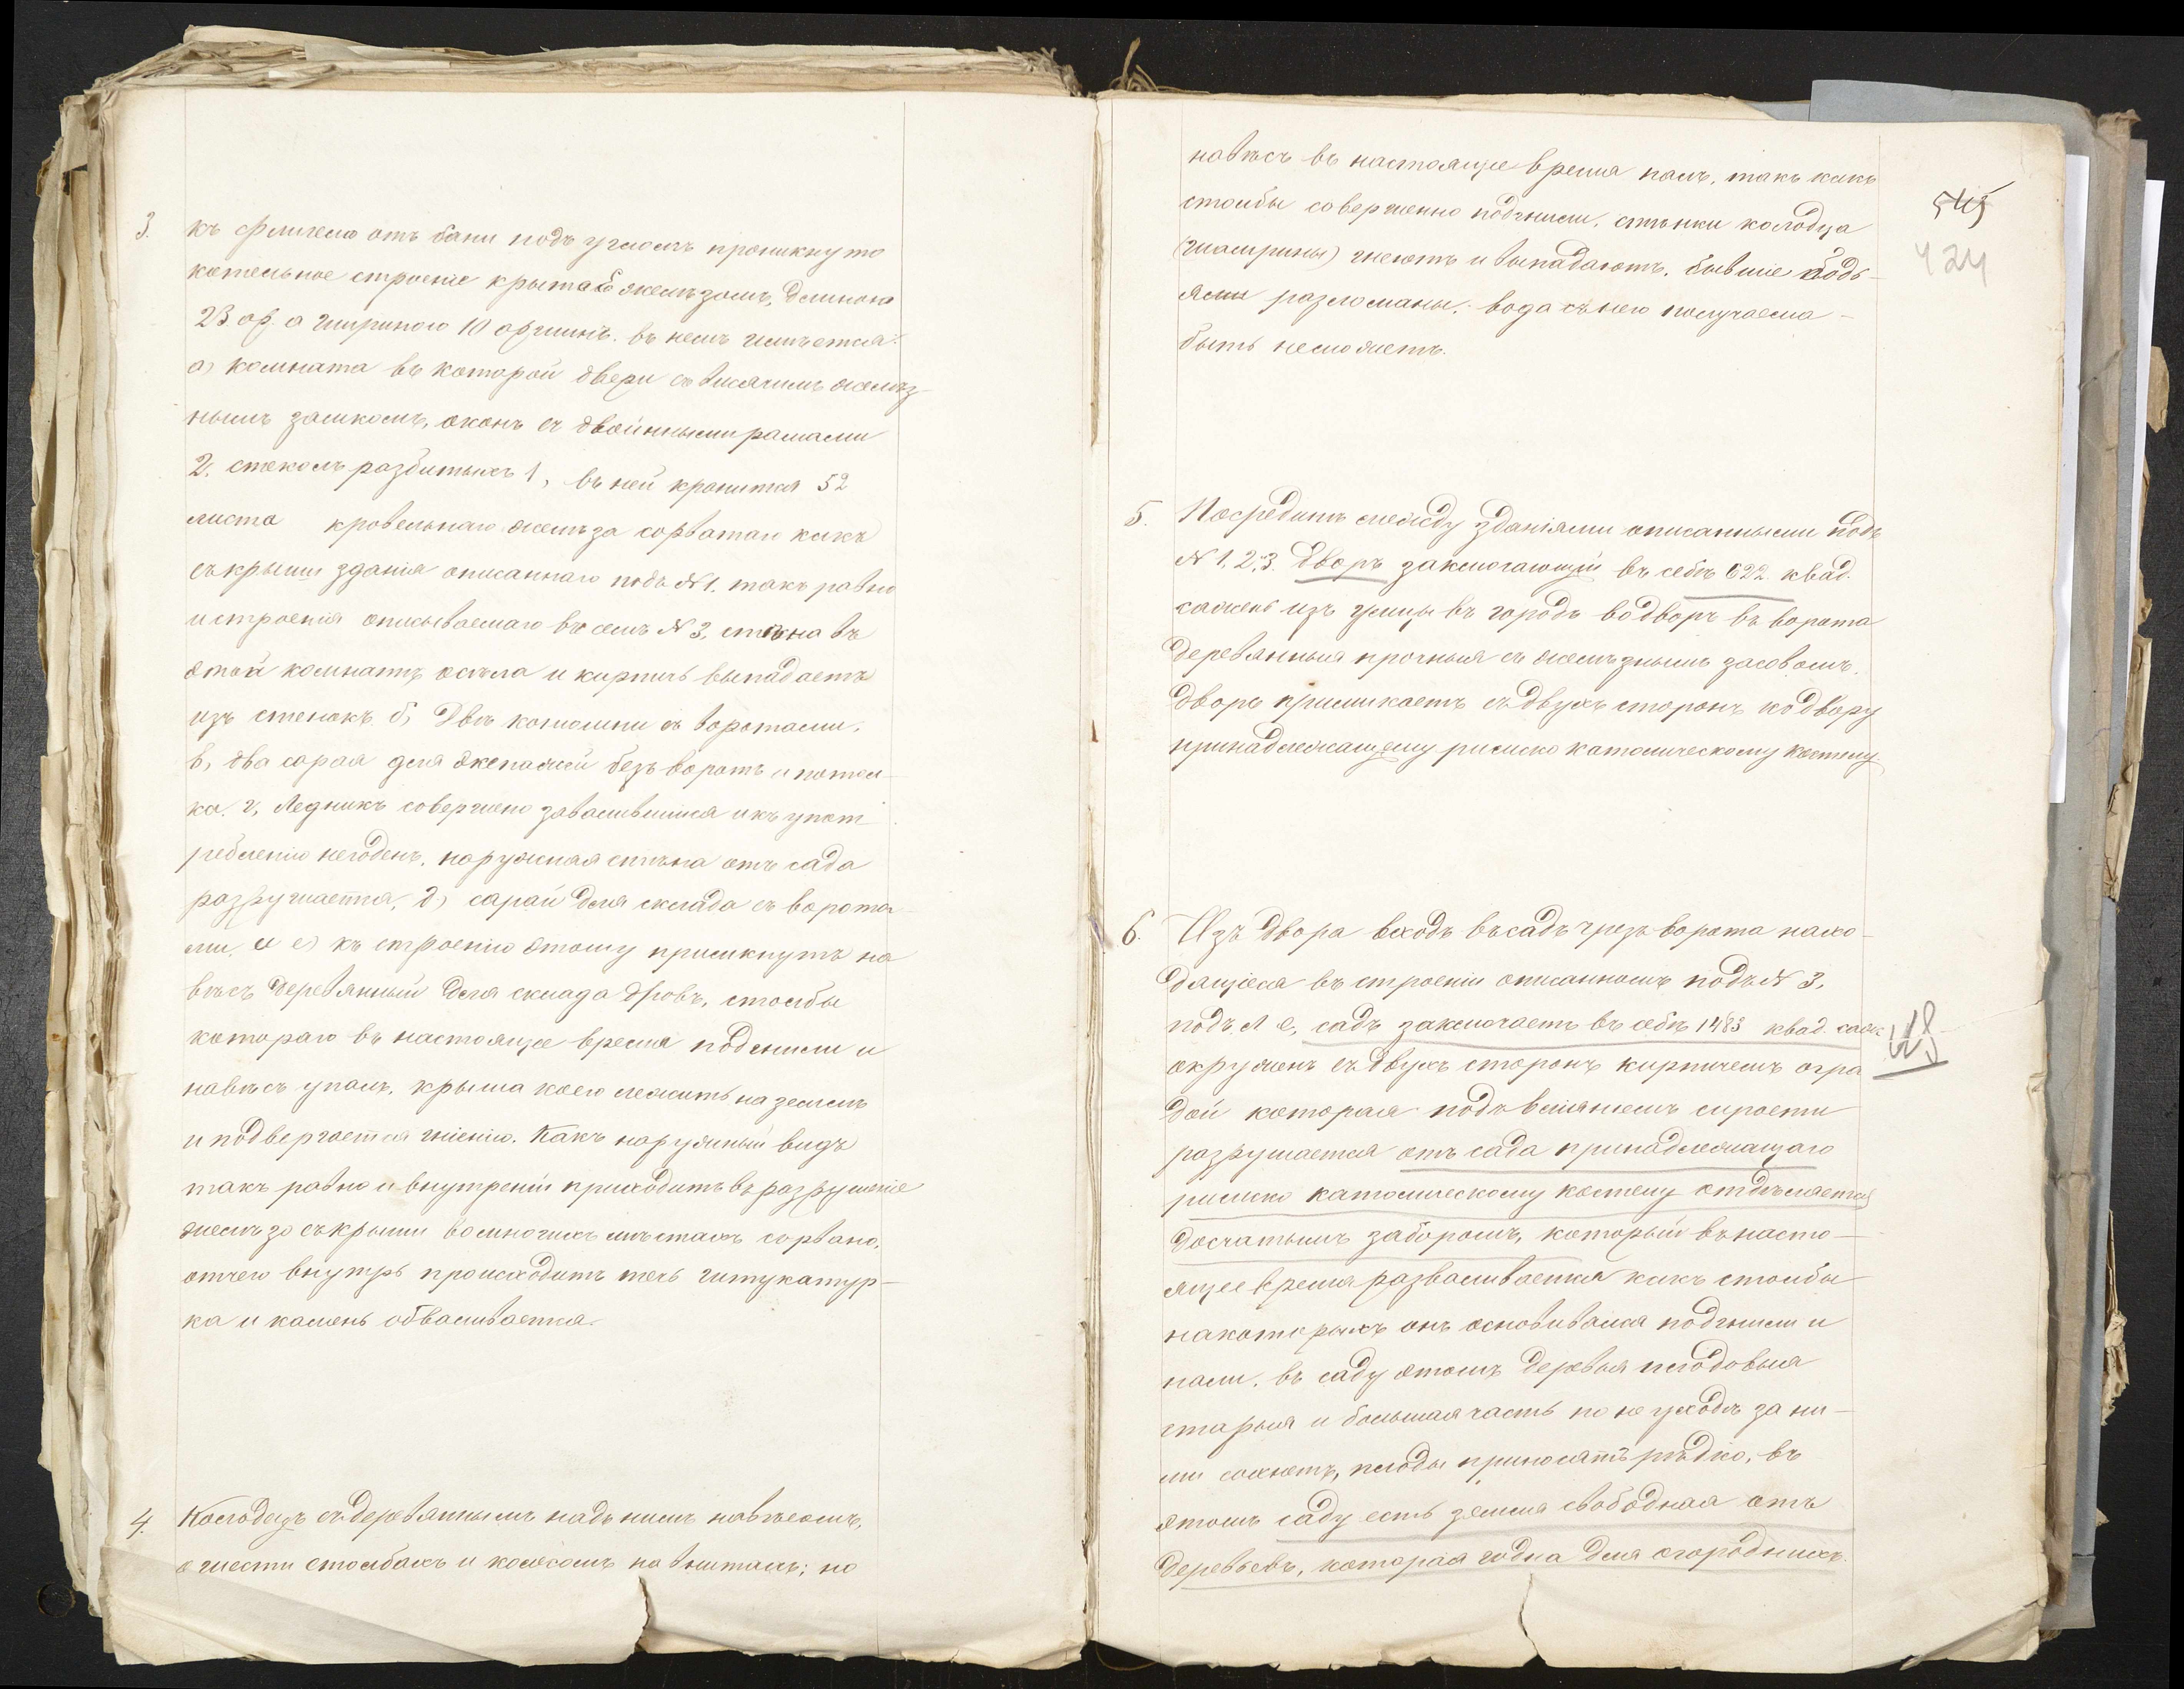 3. къ флигелю отъ бани подъ угломъ проникнуто
котельное строеніе крытаго желѣзомъ, длиною
23 ар. а шириною 10 аршинъ. въ немъ имѣется:
а) комната въ которой двери съ висячимъ желѣз-
нымъ замкомъ, оконъ съ двойными рамами
2, стеколъ разбитыхъ 1, въ ней хранится 52
листа кровельнаго желѣза сорватаго какъ
съ крыши зданія описаннаго подъ № 1. такъ равно
и строенія описываемаго въ семъ № 3, стѣна въ
этой комнатѣ осѣла и кирпичъ выпадаетъ
изъ стенокъ. б, Двѣ конюшни съ воротами.
в, два сарая для экепажей безъ воротъ и потол-
ка. г, Ледникъ совершено завалившійся и къ упот
ребленію негоденъ, наружная стѣна отъ сада
разрушается, д) сарай для склада съ ворота-
ми, и е) къ строенію этому примкнутъ на
вѣсъ деревянный для склада дровъ, столбы
котораго въ настоящее время подгнили и
навѣсъ упалъ, крыша коего лежитъ на землѣ
и подвергается гніенію. Какъ наружный видъ
такъ равно и внутреній приходитъ въ разрушеніе
желѣзо съ крыши во многихъ мѣстахъ сорвано,
отчего внутрь происходитъ течь штукатур-
ка и камень обваливается.
4. Колодезь съ деревяннымъ надъ нимъ навѣсомъ,
о шести столбахъ и колесомъ на винтахъ; но
навѣсъ въ настоящее время палъ, такъ какъ
столбы совершенно подгнили, стѣнки колодца
гніютъ и выпадаютъ, бывшіе
разломаны; вода съ него получаема
быть неможетъ.
424
5. Посрединѣ между зданіями описанными подъ
№ 1, 2, 3. Дворъ заключающій въ себѣ 622 квад.
сажень изъ улицы въ городъ во дворъ въ ворота
деревянныя прочныя съ желѣзнымъ засовомъ.
Дворъ примикаетъ съ двухъ сторонъ ко двору
принадлежащему римско католическому костелу.
6. Изъ двора входъ въ садъ чрезъ ворота нахо-
дящіеся въ строеніи описанномъ подъ № 3,
подъ л е, садъ заключаетъ въ себѣ 1483 квад. саж
окруженъ съ двухъ сторонъ кирпичемъ огра
дой которая подъ вліяніемъ сырости
разрушается отъ сада принадлежащаго
римско католическому костелу отдѣляется
досчатымъ заборомъ, который въ насто-
ящее время разваливается какъ столбы
на которыхъ онъ основивался подгнили и
пали. въ саду этомъ деревья плодовыя
старыя и большая часть по не уходѣ за ни-
ми сохнетъ, плоды приносятъ рѣдко, въ
этомъ саду есть земля свободная отъ
деревьевъ, которая годна для огороднихъ